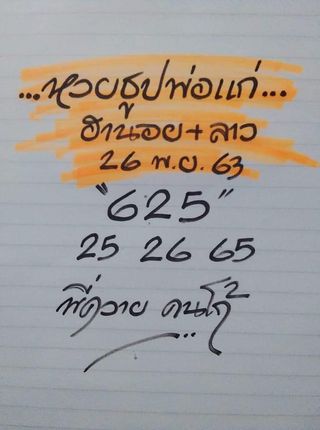 ...หวยธูปพ่อแก่...
ฮานอย+ลาว
26 พ.ย. 63
"625"
25 26 65
พี่ควาย คนโก้2
...